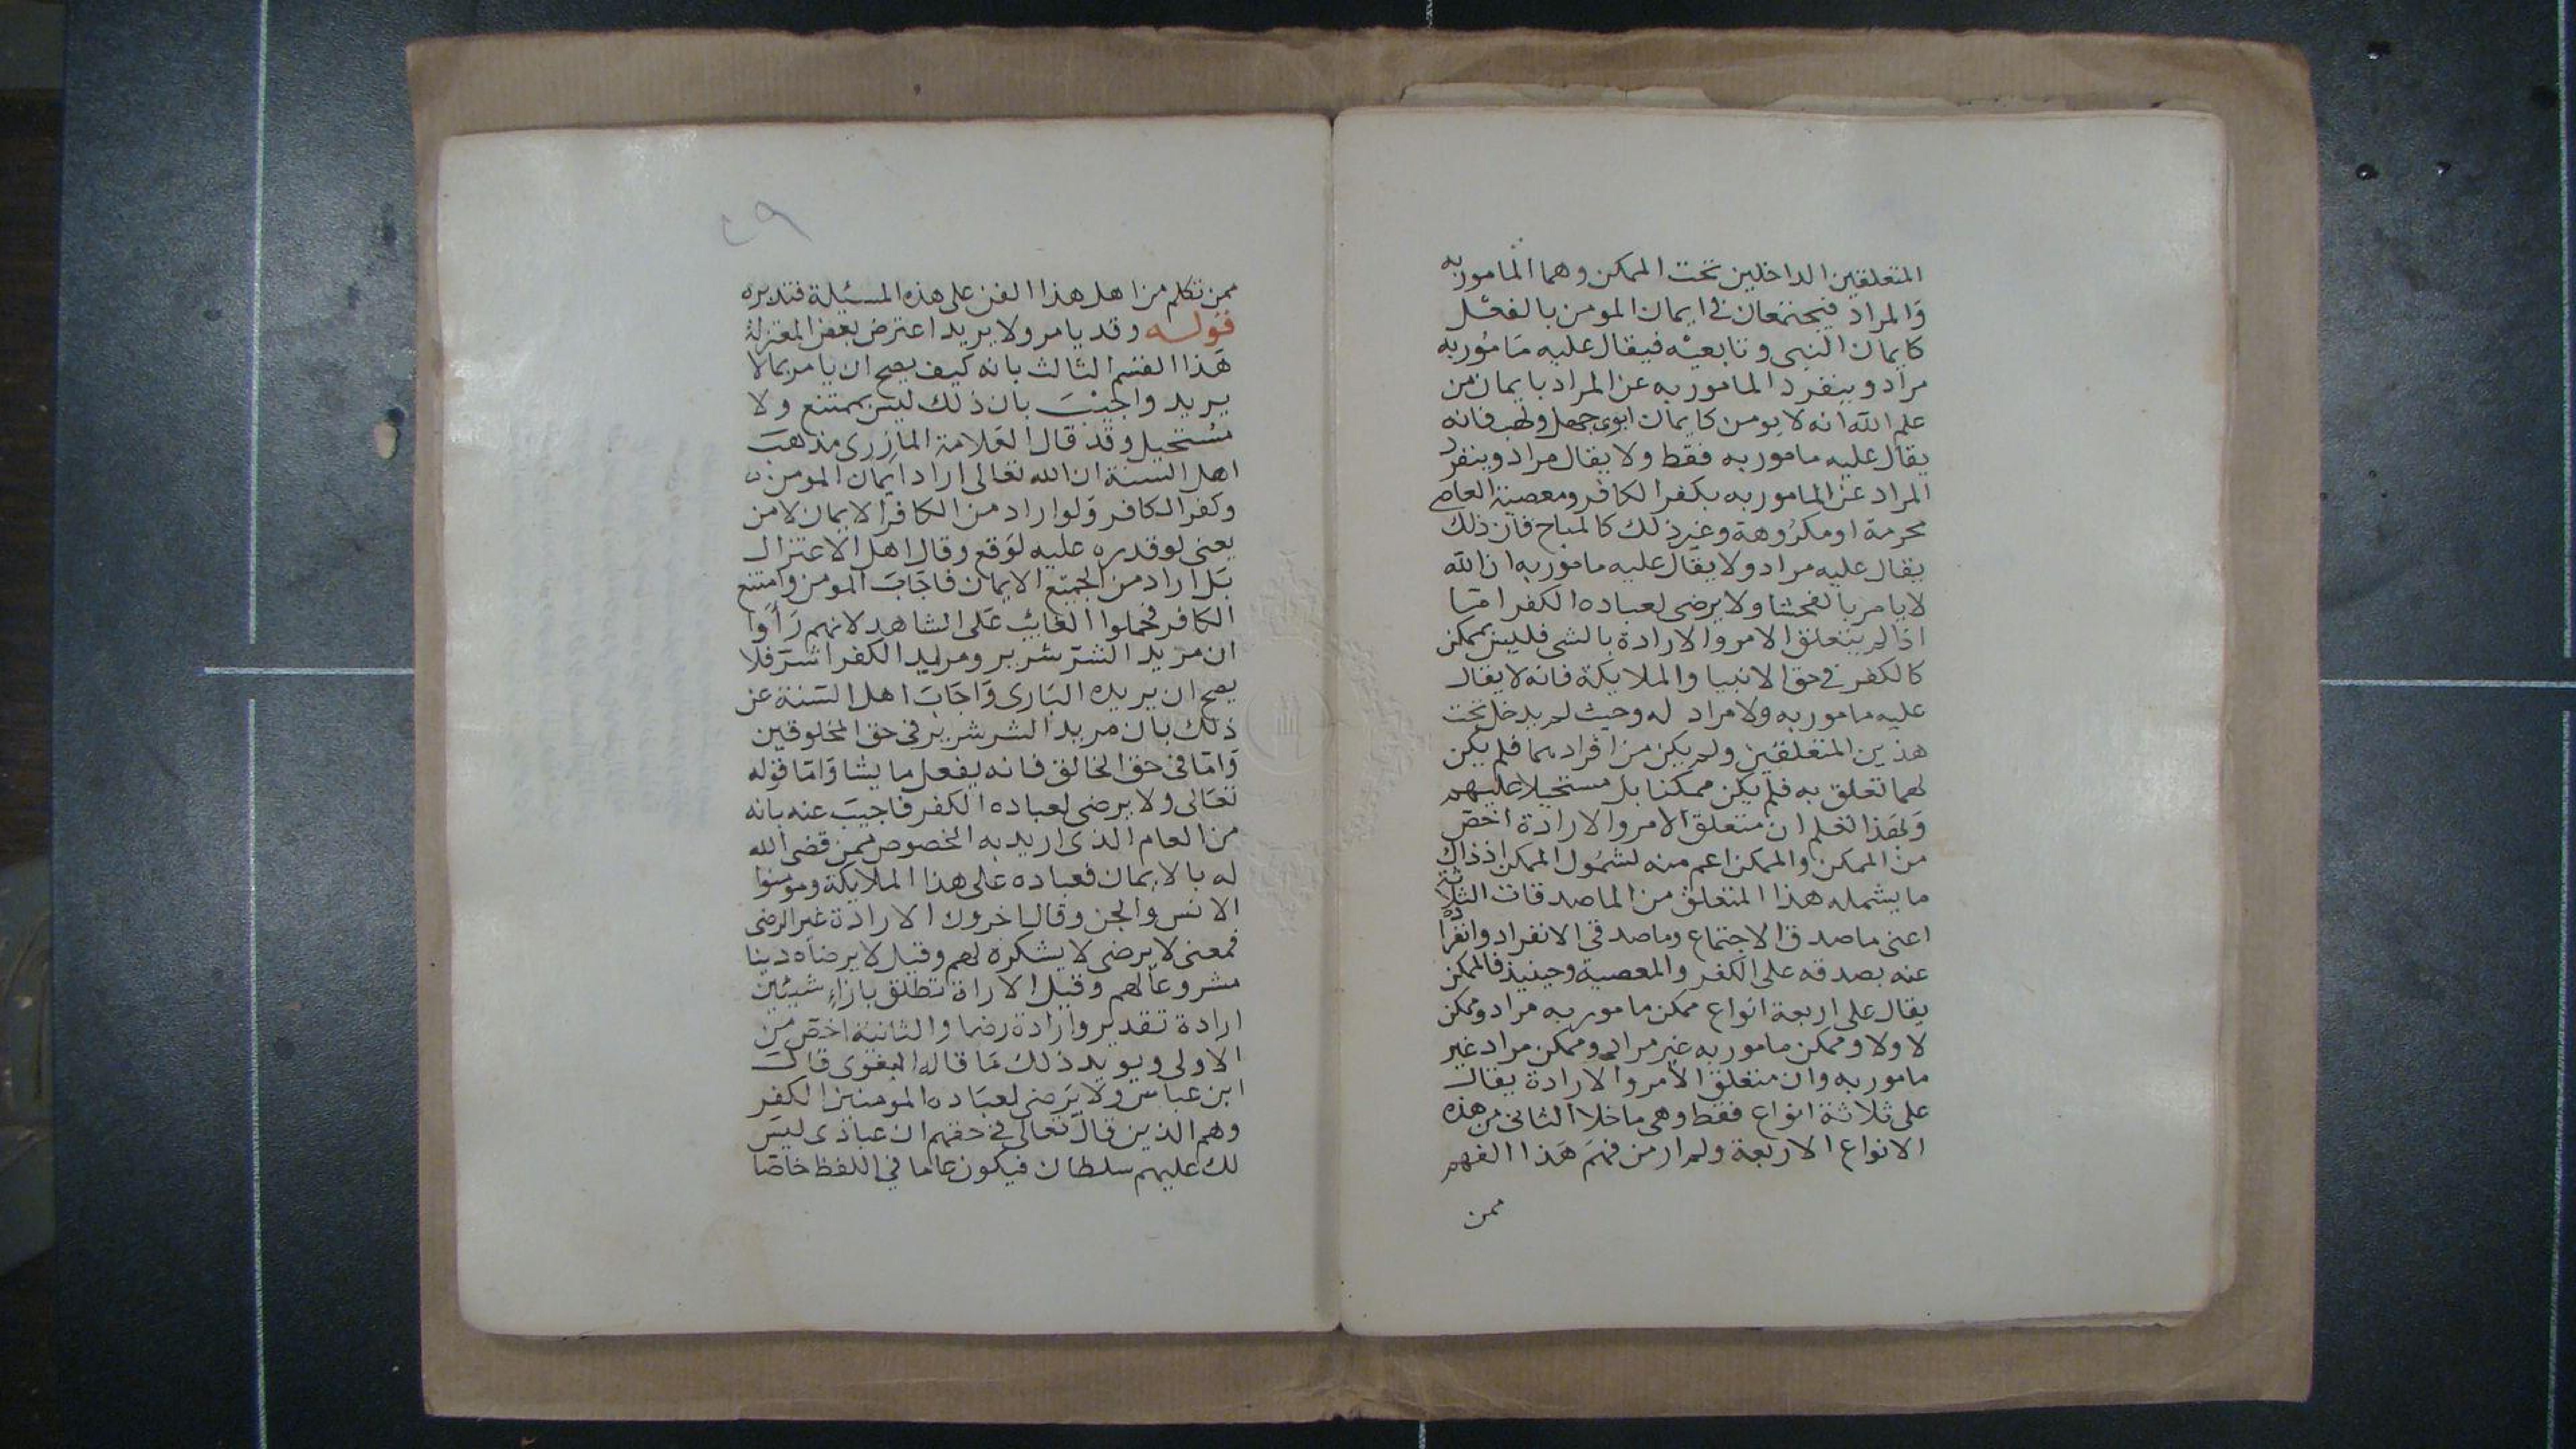 المتعلقين الداخلين تحت الممكن وهما المامور به
والمراد فيجتمعان في ايمان المومن بالفعل
كايمان النبي وتابعيه فيقال عليه مامور به
مراد وينفرد المامور به عن المراد بايمان من
علم الله انه لا يومن كايمان ابوي جهل ولهب فانه
يقال عليه مامور به فقط ولا يقال مراد وينفرد
المراد عن المامور به بكفر الكافر ومعصية العاصي
محرمة او مكروهة وغير ذلك كالمباح فان ذلك
يقال عليه مراد ولا يقال عليه مامور به ان الله
لا يامر بالفحشا ولا يرضى لعباده الكفر اما
اذا لم يتعلق الامر والارادة بالشي فليس بممكن
كالكفر في حق الانبيا والملايكة فانه لا يقال
عليه مامور به ولا مراد له وحيث لم يدخل تحت
هذين المتعلقين ولم يكن من افرادهما فلم يكن
لهما تعلق به فلم يكن ممكنا بل مستحيلا عليهم
وبهذا تعلم ان متعلق الامر والارادة اخص
من الممكن والممكن اعم منه لشمول الممكن اذ ذاك
ما يشمله هذا المتعلق من الماصدقات الثلاثة
اعني ماصدق الاجتماع وماصدقي الانفراد وانفراده
عنه بصدقه على الكفر والمعصية وحينيذ فالممكن
يقال على اربعة انواع ممكن مامور به مراد وممكن
لا ولا وممكن مامور به غير مراد وممكن مراد غير
مامور به وان متعلق الامر والارادة يقال
على ثلاثة انواع فقط وهي ما خلا الثاني من هذه
الانواع الاربعة ولم ار من فهم هذا الفهم
ممن
٢٩
ممن تكلم من اهل هذا الفن على هذه المسيلة فتدبره
قوله وقد يامر ولا يريد اعترض بعض المعتزلة
هذا القسم الثالث بانه كيف يصح ان يامر بما لا
يريد واجيب بان ذلك ليس بممتنع ولا
مستحيل وقد قال العلامة المازري مذهب
اهل السنة ان الله تعالى اراد ايمان المومن
وكفر الكافر ولو اراد من الكافر الايمان لامن
يعني لو قدره عليه لوقع وقال اهل الاعتزال
بل اراد من الجميع الايمان فاجاب المومن وامتنع
الكافر فحملوا الغايب على الشاهد لانهم راوا
ان مريد الشر شرير ومريد الكفر اشر فلا
يصح ان يريده الباري واجاب اهل السنة عن
ذلك بان مريد الشر شرير في حق المخلوقين
واما في حق الخالق فانه يفعل ما يشا واما قوله
تعالى ولا يرضى لعباده الكفر فاجيب عنه بانه
من العام الذي اريد به الخصوص ممن قضى الله
له بالايمان فعباده على هذا الملايكة ومومنوا
الانس والجن وقال اخرون الارادة غير الرضى
فمعنى لا يرضى لا يشكره لهم وقيل لا يرضاه دينا
مشروعا لهم وقيل الاراة تطلق بازاء شيئين
ارادة تقدير وارادة رضا والثانية اخص من
الاولى ويويد ذلك ما قاله البغوي قال
ابن عباس ولا يرضى لعباده المومنين الكفر
وهم الذين قال تعالى في حقهم ان عبادي ليس
لك عليهم سلطان فيكون عاما في اللفظ خاصا